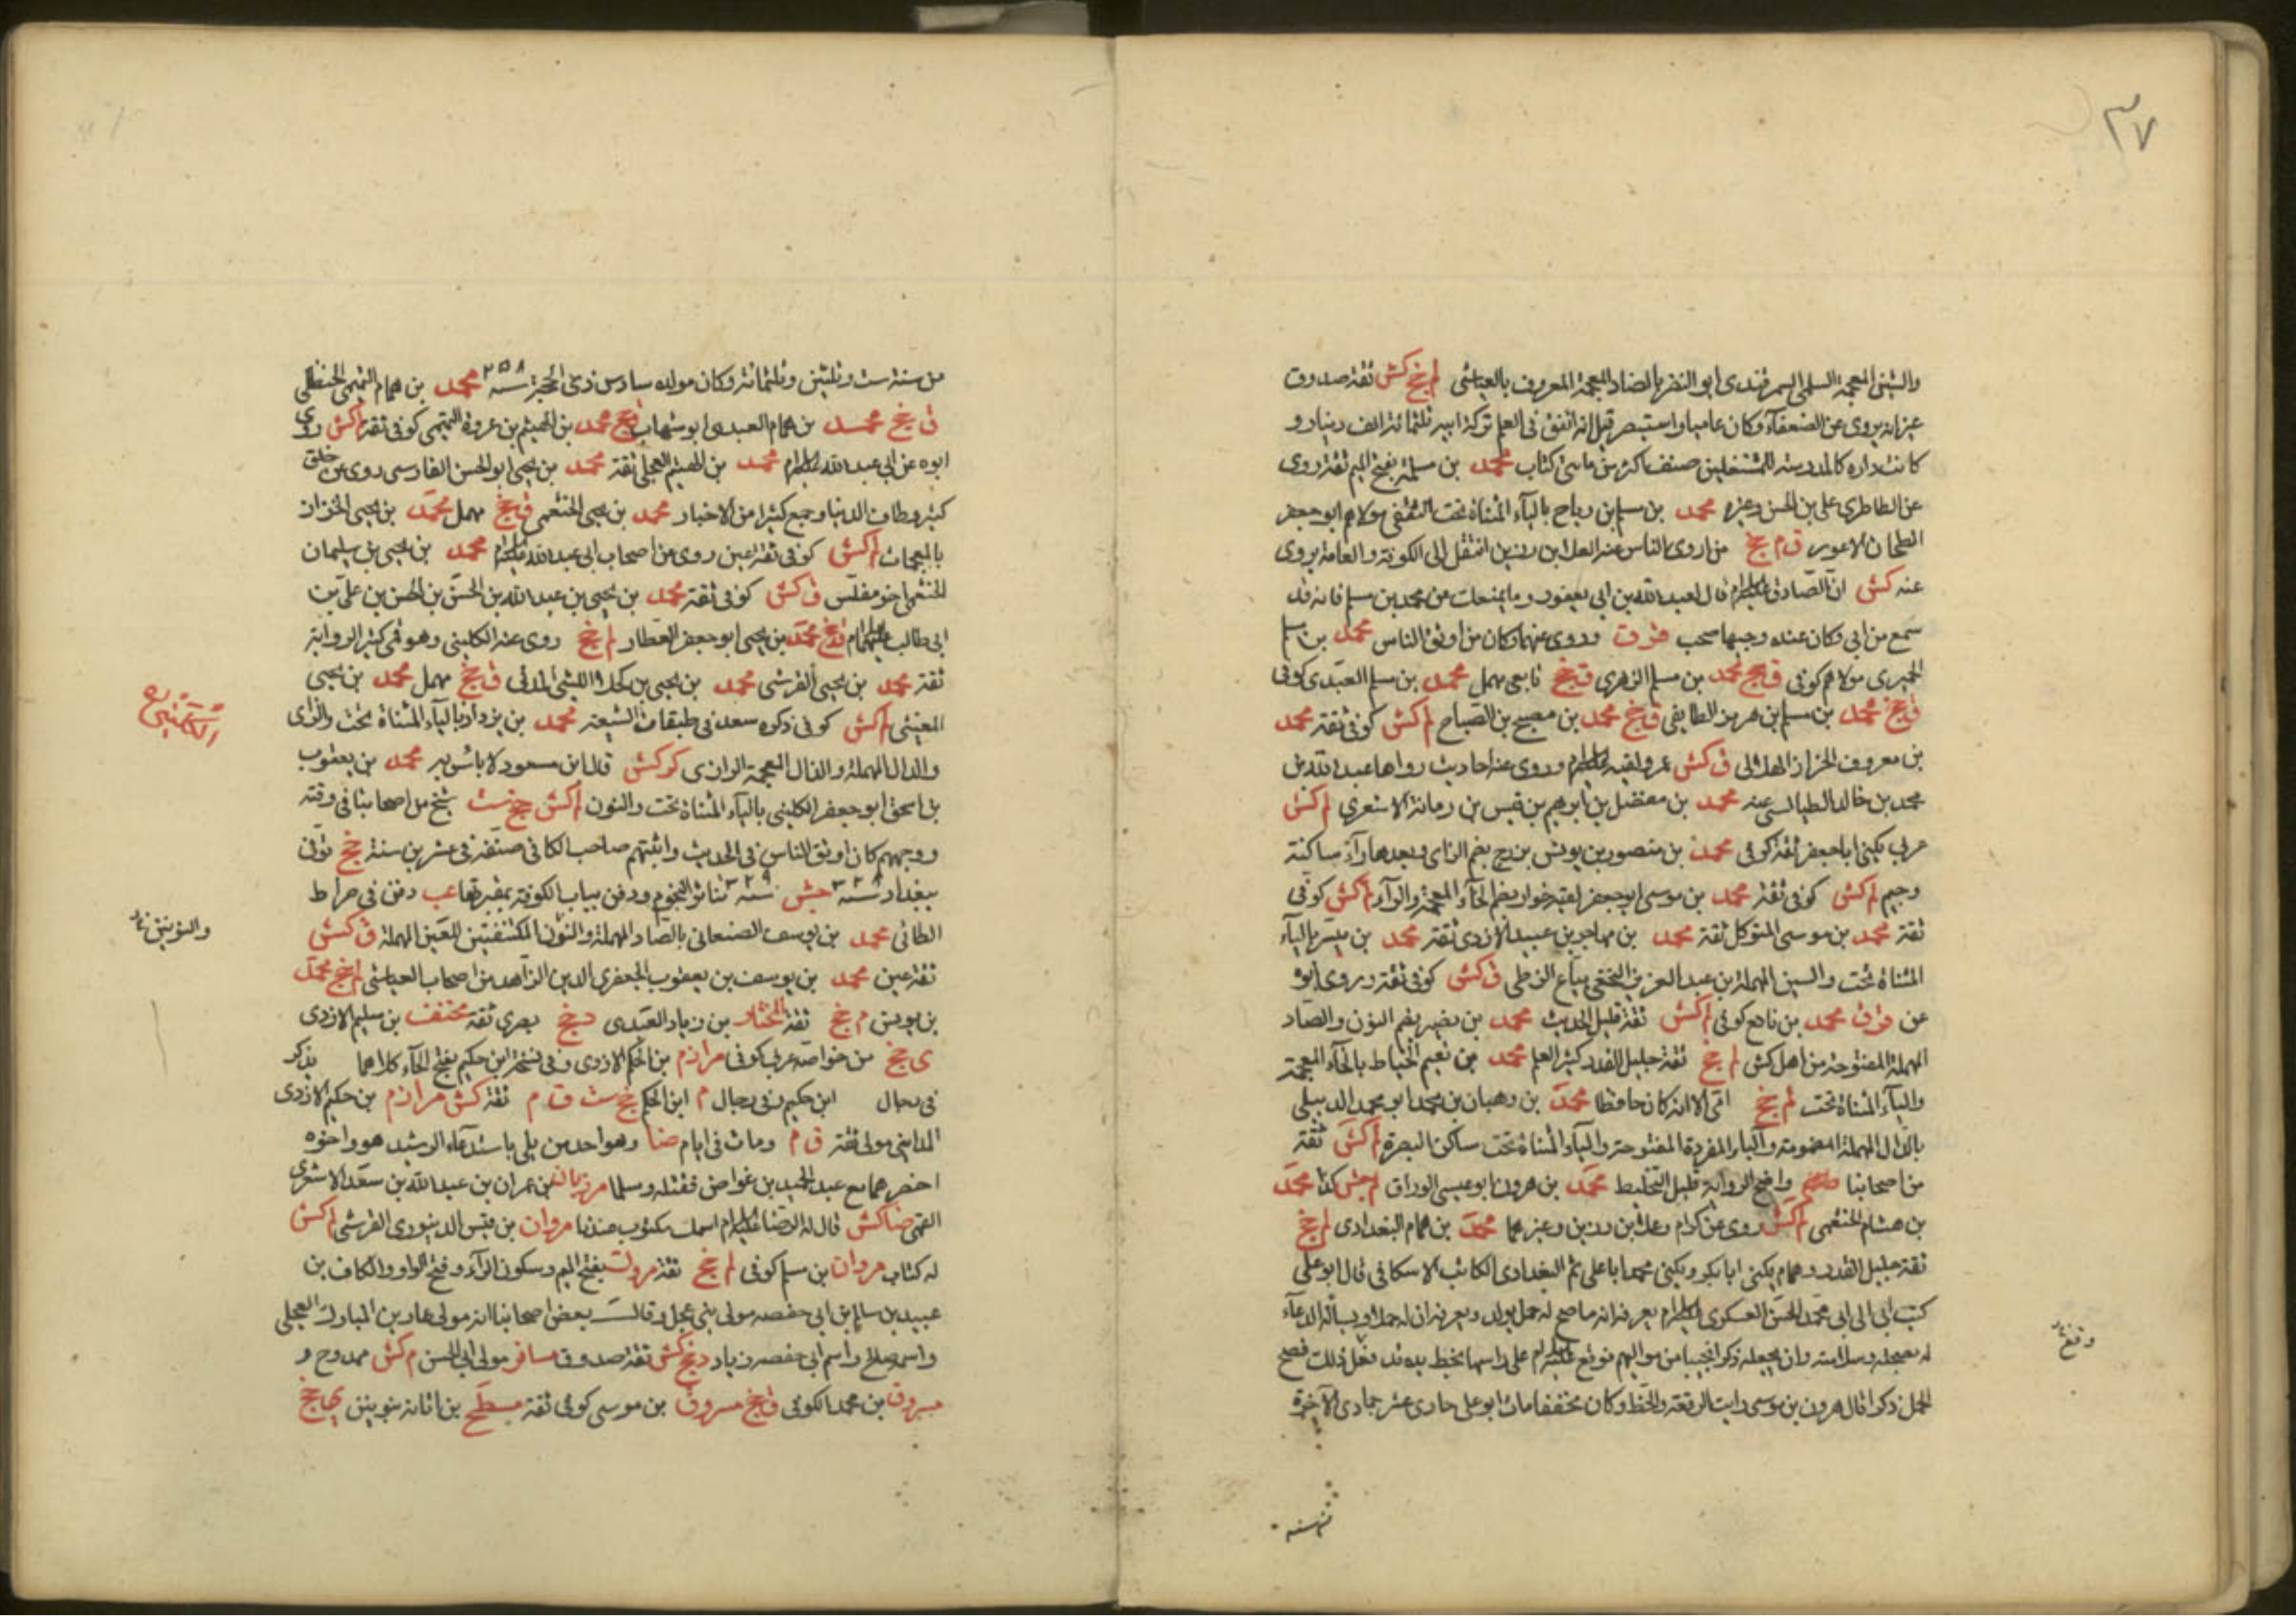 ٣٧
والشين المعجمة السلمي السمرقندي ابو النضر بالضاد المعجمة المعروف بالعياشي لم جخ كش ثقة صدوق
غير انه يروي عن الضعفآء وكان عاميا واستبصر قيل انه انفق في العلم تركة ابيه ثلثمائة الف دينار و
كانت داره كالمدرسة للمشتغلين صنف اكثر من مايتى كتاب محمد بن مسلمة بفتح الميم ثقة روى
عن الطاطرى على بن الحسن وغيره محمد بن مسلم بن رباح بالبآء المثناة تحت الثقفى مولاهم ابو جعفر
الطحان الاعور ق م جخ من اروى الناس عنه العلا بن رزين انتقل الى الكوفة والعامة يروى
عنه كش ان الصادق قال لعبد الله بن ابي يعفور وما يمنعك من محمد بن مسلم فانه قد
سمع من ابي وكان عنده وجيها صحب قر ق وروى عنهما وكان من اوثق الناس محمد بن مسلم
الحميرى مولاهم كوفى ق جخ محمد بن مسلم الزهرى ق جخ تابعى مهمل محمد بن مسلم العبدى كوفى
ق جخ محمد بن مسلم بن هرمز الطايفى ق جخ محمد بن مصبح بن الصباح لم كش كوفى ثقة محمد
بن معروف الخزاز الهلالى ق كش عمر ولقيه وروى عنه احاديث رواها عبد الله بن
محمد بن خالد الطيالسى عنه محمد بن مفضل بن ابرهيم بن قيس بن رمانة الاشعرى لم كش
عربى يكنى ابا جعفر ثقة كوفى محمد بن منصور بن يونس بزرج بضم الزاى وبعدها رآء ساكنة
وجيم لم كش كوفى ثقة محمد بن موسى ابو جعفر لقبه خوار بضم الخآء المعجمة والرآء لم كش كوفى
ثقة محمد بن موسى المتوكل ثقة محمد بن مهاجر بن عبيد الازدى ثقة محمد بن ميسر باليآء
المثناة تحت والسين المهملة بن عبد العزيز النخعى بياع الزطى ق كش كوفى ثقة وروى ابوه
عن قر ق محمد بن نافع كوفى لم كش ثقة قليل الحديث محمد بن نصير بضم النون والصاد
المهملة المفتوحة من اهل كش لم جخ ثقة جليل القدر كثير العلم محمد بن نعيم الخياط بالخآء المعجمة
واليآء المثناة تحت لم جخ امى الا انه كان حافظا محمد بن وهبان بن محمد ابو محمد الدبيلى
بالدال المهملة المضمومة والبآء المفردة المفتوحة واليآء المثناة تحت ساكن البصرة لم كش ثقة
من اصحابنا واضح الرواية قليل التخليط محمد بن هرون ابو عيسى الوراق لم جش كذا محمد
بن هشام الخثعمى لم كش روى عن كرام وعلا بن رزين وغيرهما محمد بن همام البغدادى لم جخ
ثقة جليل القدر وهمام يكنى ابا بكر ويكنى محمد ابا على ثم البغدادى الكاتب الاسكافى قال ابو على
كتب ابى الى ابى محمد الحسن العسكرى يعرفه انه ما صح له حمل بولد ويعرفه ان له حملا ويسأله الدعآء
له بصحته وسلامته وان يجعله ذكرا نجيبا من مواليهم فوقع على راسها بخط يده قد فعل ذلك فصح
الحمل ذكرا قال هرون بن موسى رايت الرقعة والخط وكان محققا مات ابو على حادى عشر جمادى الآخرة
وقع
من سنه
من سنة ست وثلثين وثلثمائة وكان مولده سادس ذى الحجة سنه ٢٥٨ محمد بن همام التميمى الحنظلى
ق جخ محمد بن همام العبدى ابو شهاب ق جخ محمد بن الهيثم بن عروة التميمى كوفى ثقة لم كش روى
ابوه عن ابى عبد الله محمد بن الهيثم العجلى ثقة محمد بن يحيى ابو الحسن الفارسى روى عن خلق
كثير وطاف الدنيا وجمع كثيرا من الاخبار محمد بن يحيى الخثعمى ق جخ مهمل محمد بن يحيى الخزاز
بالمعجمات لم كش كوفى ثقة عين روى عن اصحاب ابى عبد الله محمد بن يحيى بن سليمان
الخثعمى اخو مغلس ق كش كوفى ثقة محمد بن يحيى بن عبد الله بن الحسن بن الحسن بن على بن
ابى طالب ق جخ محمد بن يحيى ابو جعفر العطار لم جخ روى عنه الكلينى وهو قمى كثير الرواية
ثقة محمد بن يحيى القرشى محمد بن يحيى بن الليثى المدنى ق جخ مهمل محمد بن يحيى
المعينى لم كش كوفى ذكره سعد فى طبقات الشيعة محمد بن يزداد باليآء المثناة تحت والزاى
والدال المهملة والذال المعجمة الرازى كر كش قال ابن مسعود لا باس به محمد بن يعقوب
بن اسحق ابو جعفر الكلينى باليآء المثناة تحت والنون لم كش جخ ست شيخ من اصحابنا فى وقته
ووجههم كان اوثق الناس فى الحديث واثبتهم صاحب الكافى صنفه فى عشرين سنة جخ توفى
ببغداد سنه ٣٢٨ جش سنه ٣٢٩ تناثر النجوم ودفن بباب الكوفة بمقبرتها عب دفن فى صراط
الطائى محمد بن يوسف الصنعانى بالصاد المهملة والنون المكتنفتين للعين المهملة ق كش
ثقة عين محمد بن يوسف بن يعقوب الجعفرى الدين الزاهد من اصحاب العياشى لم جخ محمد
بن يونس م جخ ثقة المختار بن زياد العبدى د جخ بصرى ثقة مخنف بن سليم الازدى
ى جخ من خواصه عربى كوفى مرازم بن الحكم الازدى وفى نسخة ابن حكيم بفتح الحآء كلاهما يذكر
فى رجال ابن حكيم وفى رجال م ابن الحكم جخ ست ق م ثقة كش مرازم بن حكيم الازدى
المداينى مولى ثقة ق م ومات فى ايام ضا وهو احد من بلى باستدعآء الرشيد هو واخوه
احضرهما مع عبد الحميد بن غواص فقتله وسلما مرزبان بن عمران بن عبد الله بن سعد الاشعرى
القمى ضا كش قال له الرضا اسمك مكتوب عندنا مروان بن قيس الدينورى القرشى لم كش
له كتاب مروان بن مسلم كوفى لم جخ ثقة مروك بفتح الميم وسكون الرآء وفتح الواو والكاف بن
عبيد بن سالم بن ابى حفصه مولى بنى عجل وقالت بعض اصحابنا انه مولى عمار بن المبارك العجلى
واسمه صالح واسم ابى حفصه زياد د جخ كش ثقة صدوق مسافر مولى ابى الحسن م كش ممدوح و
مسروق بن محمد الكوفى ق جخ مسروق بن موسى كوفى ثقة مسطح بن اثاثه بنوينن ى جخ
الكلينى ره
والنونين